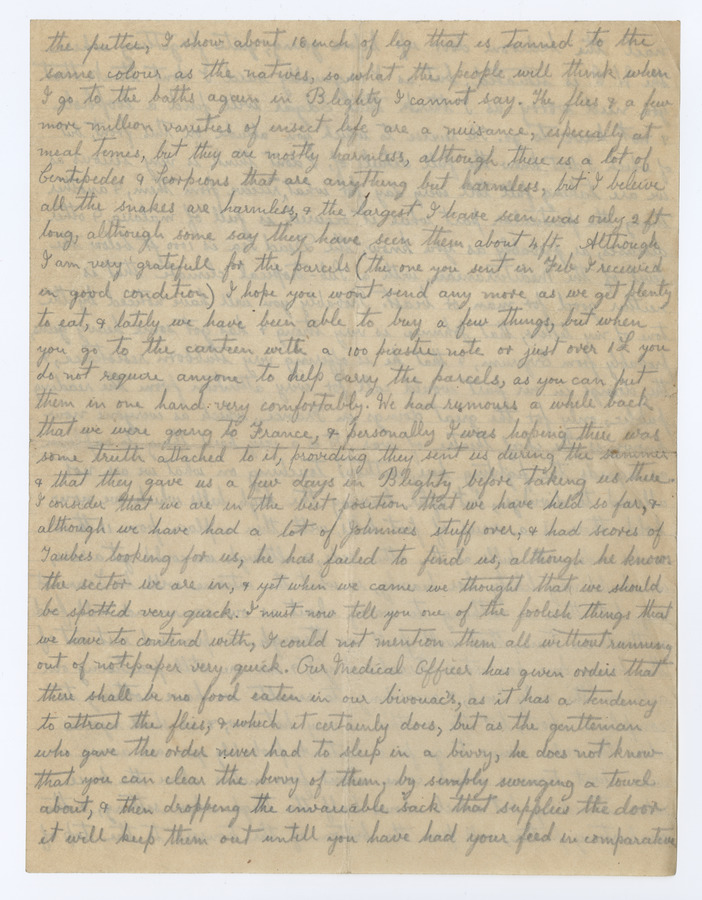 the puttee, I show about 18 inch of leg that is tanned to the
same colour as the natives, so what the people will think when
I go to the baths again in Blighty I cannot say. The flies & a few
more million varieties of insect life are a nuisance, especially at
meal times, but they are mostly harmless, although there is a lot of
Centipedes & Scorpions that are anything but harmless, but I beleive
all the snakes are harmless, & the largest I have seen was only 2 ft
long, although some say they have seen them about 4 ft. Although
I am very gratefull for the parcels (the one you sent in Feb I received
in good condition) I hope you wont send any more as we get plenty
to eat, & lately we have been able to buy a few things, but when
you go to the canteen with a 100 piastre note or just over 1£ you
do not require anyone to help carry the parcels, as you can put
them in one hand very comfortably. We had rumours a while back
that we were going to France, & personally I was hoping there was
some truth attached to it, providing they sent us during the summer
& that they gave us a few days in Blighty before taking us there.
I consider that we are in the best position that we have held so far, &
although we have had a lot of Johnnies stuff over, & had scores of
Taubes looking for us, he has failed to find us, although he knows
the sector we are in, & yet when we came we thought that we should
be spotted very quick. I must now tell you one of the foolish things that
we have to contend with, I could not mention them all without running
out of notepaper very quick. Our Medical Officer has given orders that
there shall be no food eaten in our bivouac's, as it has a tendency
to attract the flies, & which it certainly does, but as the gentleman
who gave the order never had to sleep in a bivvy, he does not know
that you can clear the bivvy of them, by simply swinging a towel
about, & then dropping the invariable sack that supplies the door
it will keep them out untill you have had your feed in comparative